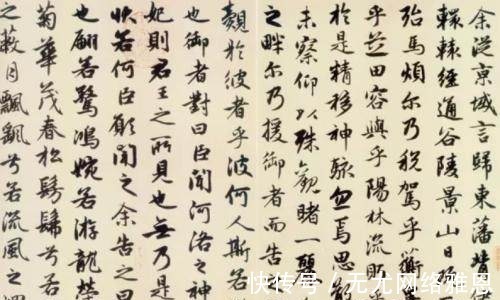 余從京域言歸東藩
轘轅經通谷陵景山日
殆馬煩尔乃税駕乎蘅
乎芝田容與乎陽林流眄
於是精移神駭忽焉思
未察仰以殊觀睹一麗
之畔尔乃援御者而告
覿於彼者乎彼何人斯若
也御者對曰臣聞河洛之神
妃則君王之所見也無乃是
狀若何臣願聞之余告之曰
也翩若驚鴻婉若游龍榮
菊華茂春松髣髴兮若
之蔽月飄飖兮若流風之
快传号 / 无尤网络雅恩